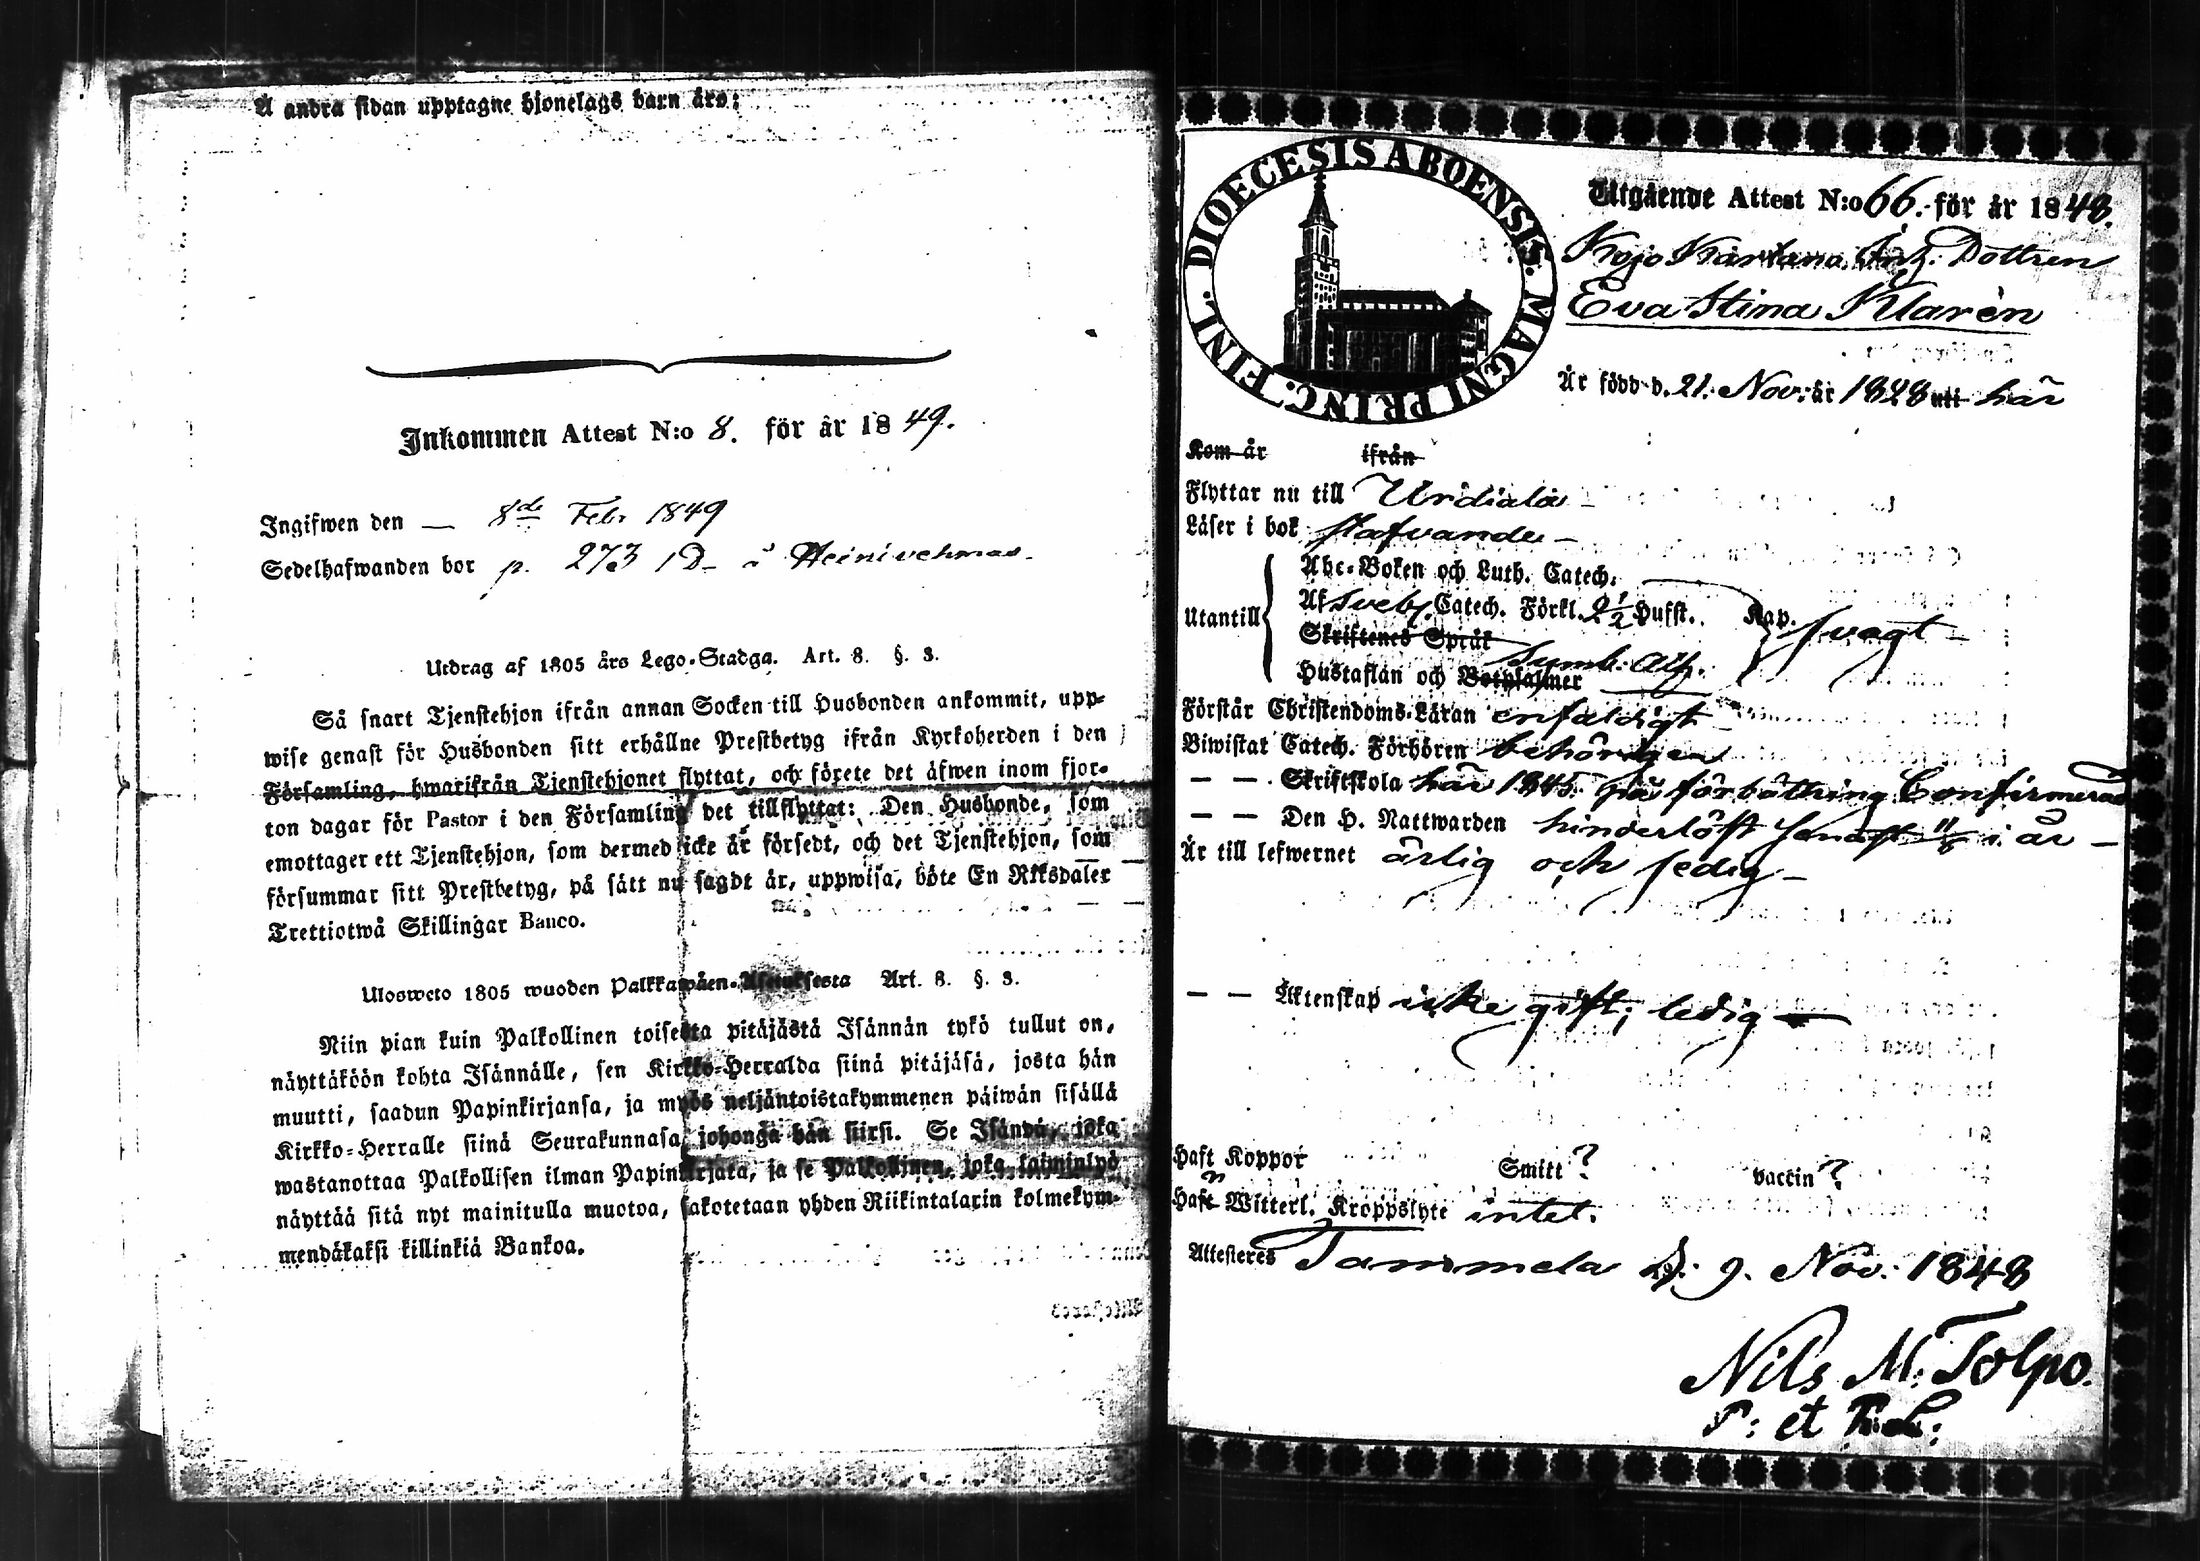 Å andra sidan upptagne hjonelags barn äro:
Inkommen Attest N:o 8. för år 1849.
Ingifwen den — 8de Febr 1849
Sedelhafwanden bor p. 273 i Heinivehmas
Utdrag af 1805 års Lego-Stadga. Art. 8. §. 3.
Så snart Tjenstehjon ifrån annan Socken till Husbonden ankommit, upp-
wise genast för Husbonden sitt erhållne Prestbetyg ifrån Kyrkoherden i den
Församling, hwarifrån Tjenstehjonet flyttat, och förete det äfwen inom fjor-
ton dagar för Pastor i den Församling det tillflyttat: Den Husbonde, som
emottager ett Tjenstehjon, som dermed icke är försedt, och det Tjenstehjon, som
försummar sitt Prestbetyg, på sätt nu sagdt är, uppwisa, böte En Riksdaler
Trettiotwå Skillingar Banco.
Ulosweto 1805 wuoden Palkkawäen-Asetuksesta Art. 8. §. 3.
Niin pian kuin Palkollinen toisesta pitäjästä Isännän tykö tullut on,
näyttäköön kohta Isännälle, sen Kirkko-Herralda siinä pitäjäsä, josta hän
muutti, saadun Papinkirjansa, ja myös neljäntoistakymmenen päiwän sisällä
Kirkko-Herralle siinä Seurakunnasa johonga hän siirsi. Se Isändä, joka
wastanottaa Palkollisen ilman Papinkirjata, ja se Palkollinen, joka laiminlyö
näyttää sitä nyt mainitulla muotoa, sakotetaan yhden Riikintalarin kolmekym-
mendäkaksi killinkiä Bankoa.
DIOECESIS ABOENSIS. MAGNI PRINC. FINL.
Utgående Attest N:o 66. för år 1848.
Dottren
Eva Stina Klarèn
Är född d. 21. Nov. år 1828 uti här
Kom år ifrån
Flyttar nu till Urdiala
Läser i bok stafvande
Utantill
Abc-Boken och Luth. Catech.
Af Sveb. Catech. Förkl. 2½ Hufst. Kap. svagt
Skriftenes Språk
Hustaflan och Botpsalmer Symb. Ath.
Förstår Christendoms-Läran enfaldigt
Biwistat Catech. Förhören behörigen
— — Skriftskola här 1845. på förbättring Confirmerad
— — Den H. Nattwarden hinderlöst senast i år —
Är till lefwernet ärlig och sedig —
— — Äktenskap icke gift; ledig —
Haft Koppor Smitt? vaccin?
Haft Witterl. Kroppslyte intet.
Attesteres Tammela d. 9. Nov. 1848
Nils M. Tolpo.
P: et